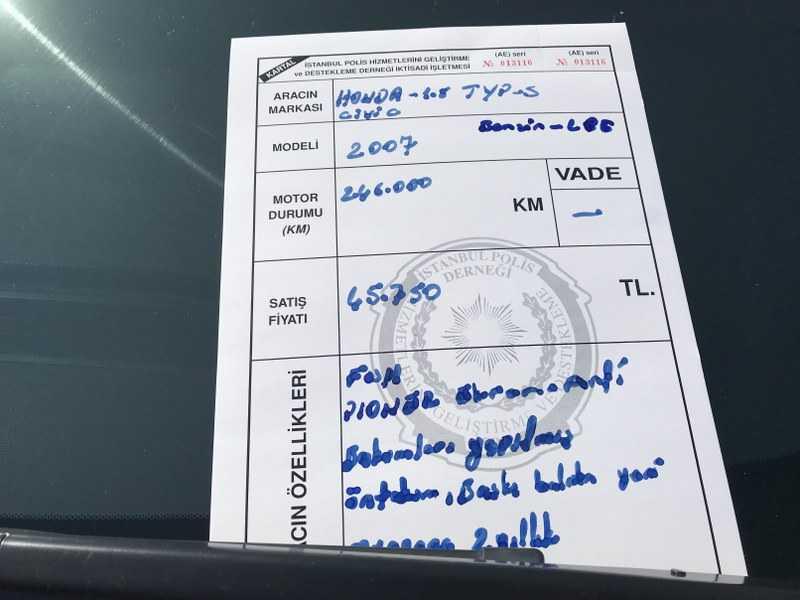 KARTAL
İSTANBUL POLİS HİZMETLERİNİ GELİŞTİRME
ve DESTEKLEME DERNEĞİ İKTİSADİ İŞLETMESİ
(AE) seri
№ 013116
(AE) seri
№ 013116
ARACIN
MARKASI
HONDA - 1.8 TYP-S
CİVİC
MODELİ
2007
Benzin - LPG
MOTOR
DURUMU
(KM)
246.000
KM
VADE
—
SATIŞ
FİYATI
45.750
TL.
İSTANBUL POLİS
DERNEĞİ
HİZMETLERİ GELİŞTİRME VE DESTEKLEME
ACIN ÖZELLİKLERİ
FUll
PIONER
Bakımları yapılmış
Öntakım, Baskı balata yeni
2 yıllık